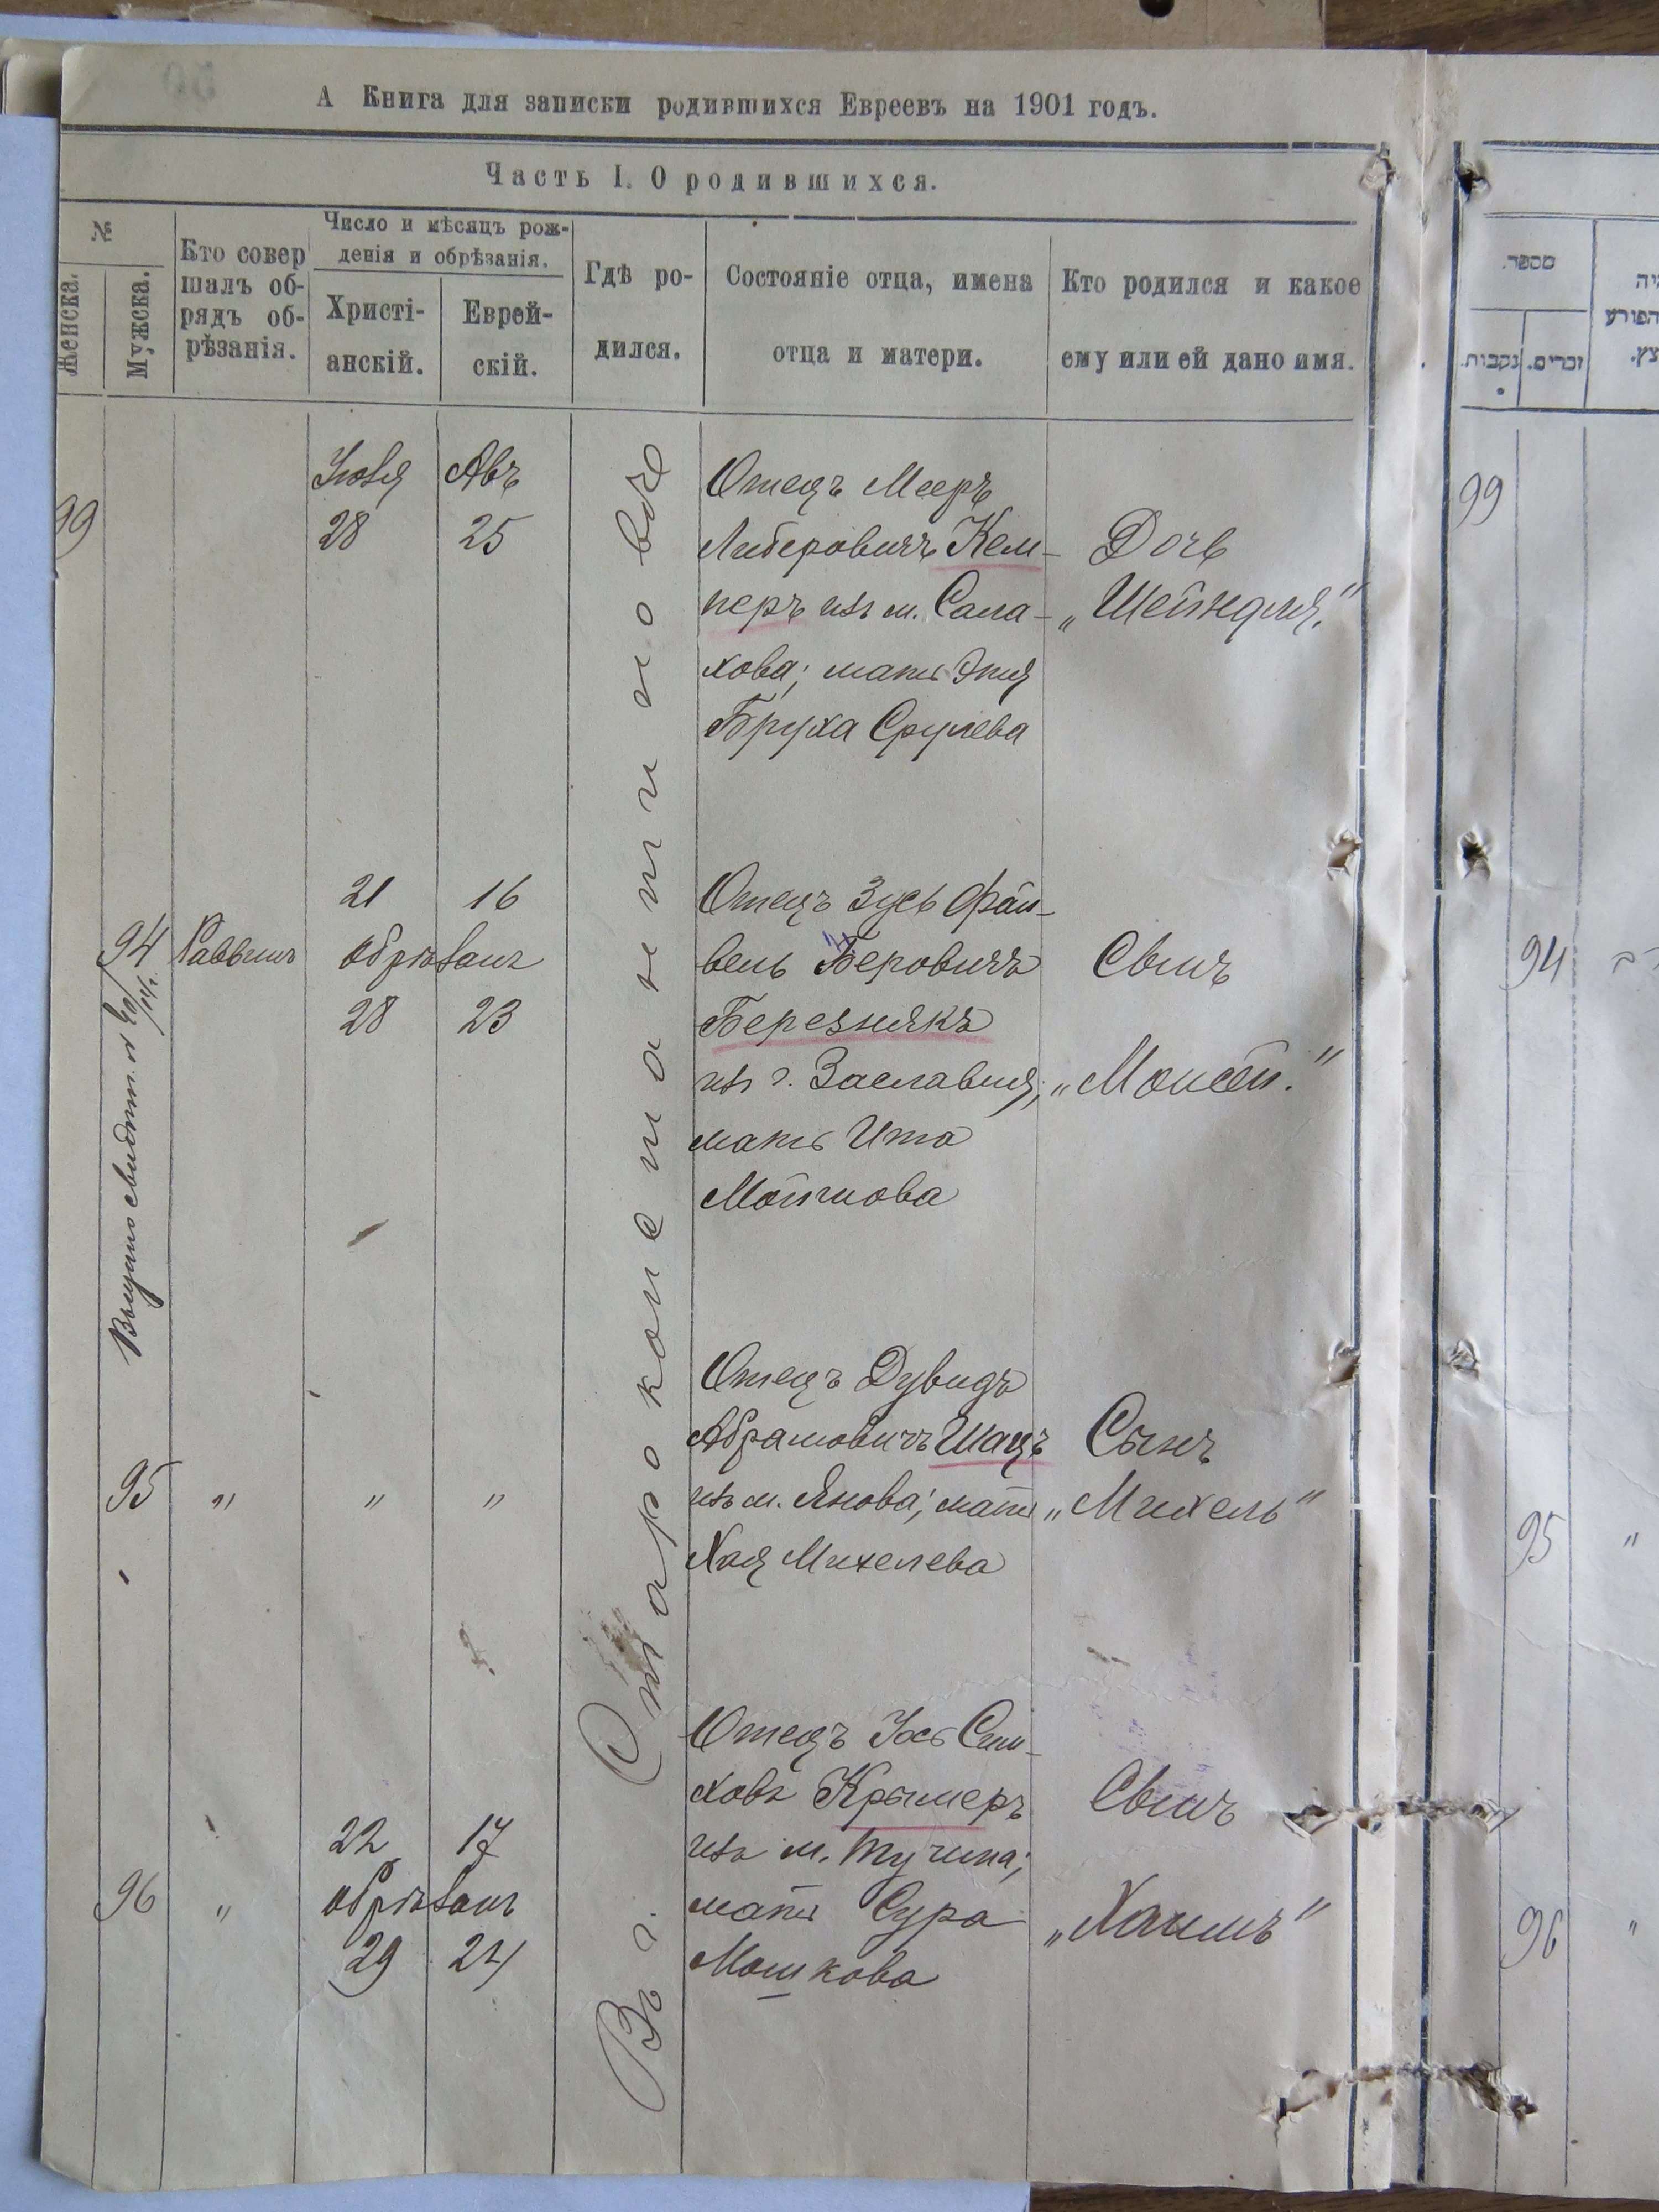 А Книга для записки родившихся Евреевъ на 1901 годъ.
Часть I. О родившихся.
№
Женска.
Мужска.
Кто совер
шалъ об-
рядъ об-
рѣзанія.
Число и мѣсяцъ рож-
денія и обрѣзанія.
Христі-
анскій.
Еврей-
скій.
Гдѣ ро-
дился.
Состояніе отца, имена
отца и матери.
Кто родился и какое
ему или ей дано имя.
מספר.
נקבות.
זכרים.
Въ г. Староконстантиновѣ
99
Августа
Авъ
28
25
Отецъ Мееръ
Либеровичъ Кем-
перъ изъ м. Сата-
нова; мать Этя
Бруха Срулева
Дочь
„Шейндля."
99
94
Выдано свидѣт.
Раввинъ
21 16
обрѣзанъ
28 23
Отецъ Зусь Фай-
вель Беровичъ
Березнякъ
изъ г. Заславля,
мать Ита
Мойшова
Сынъ
„Моисей."
94
95 „ „ „
Отецъ Дувидъ
Абрамовичъ Шацъ
изъ м. Янова; мать
Хая Михелева
Сынъ
„Михель"
95 „
96 „
22 17
обрѣзанъ
29 24
Отецъ Іось Сим-
ховъ Крымеръ
изъ м. Тучина;
мать Сура
Мошкова
Сынъ
„Хаимъ"
96 „